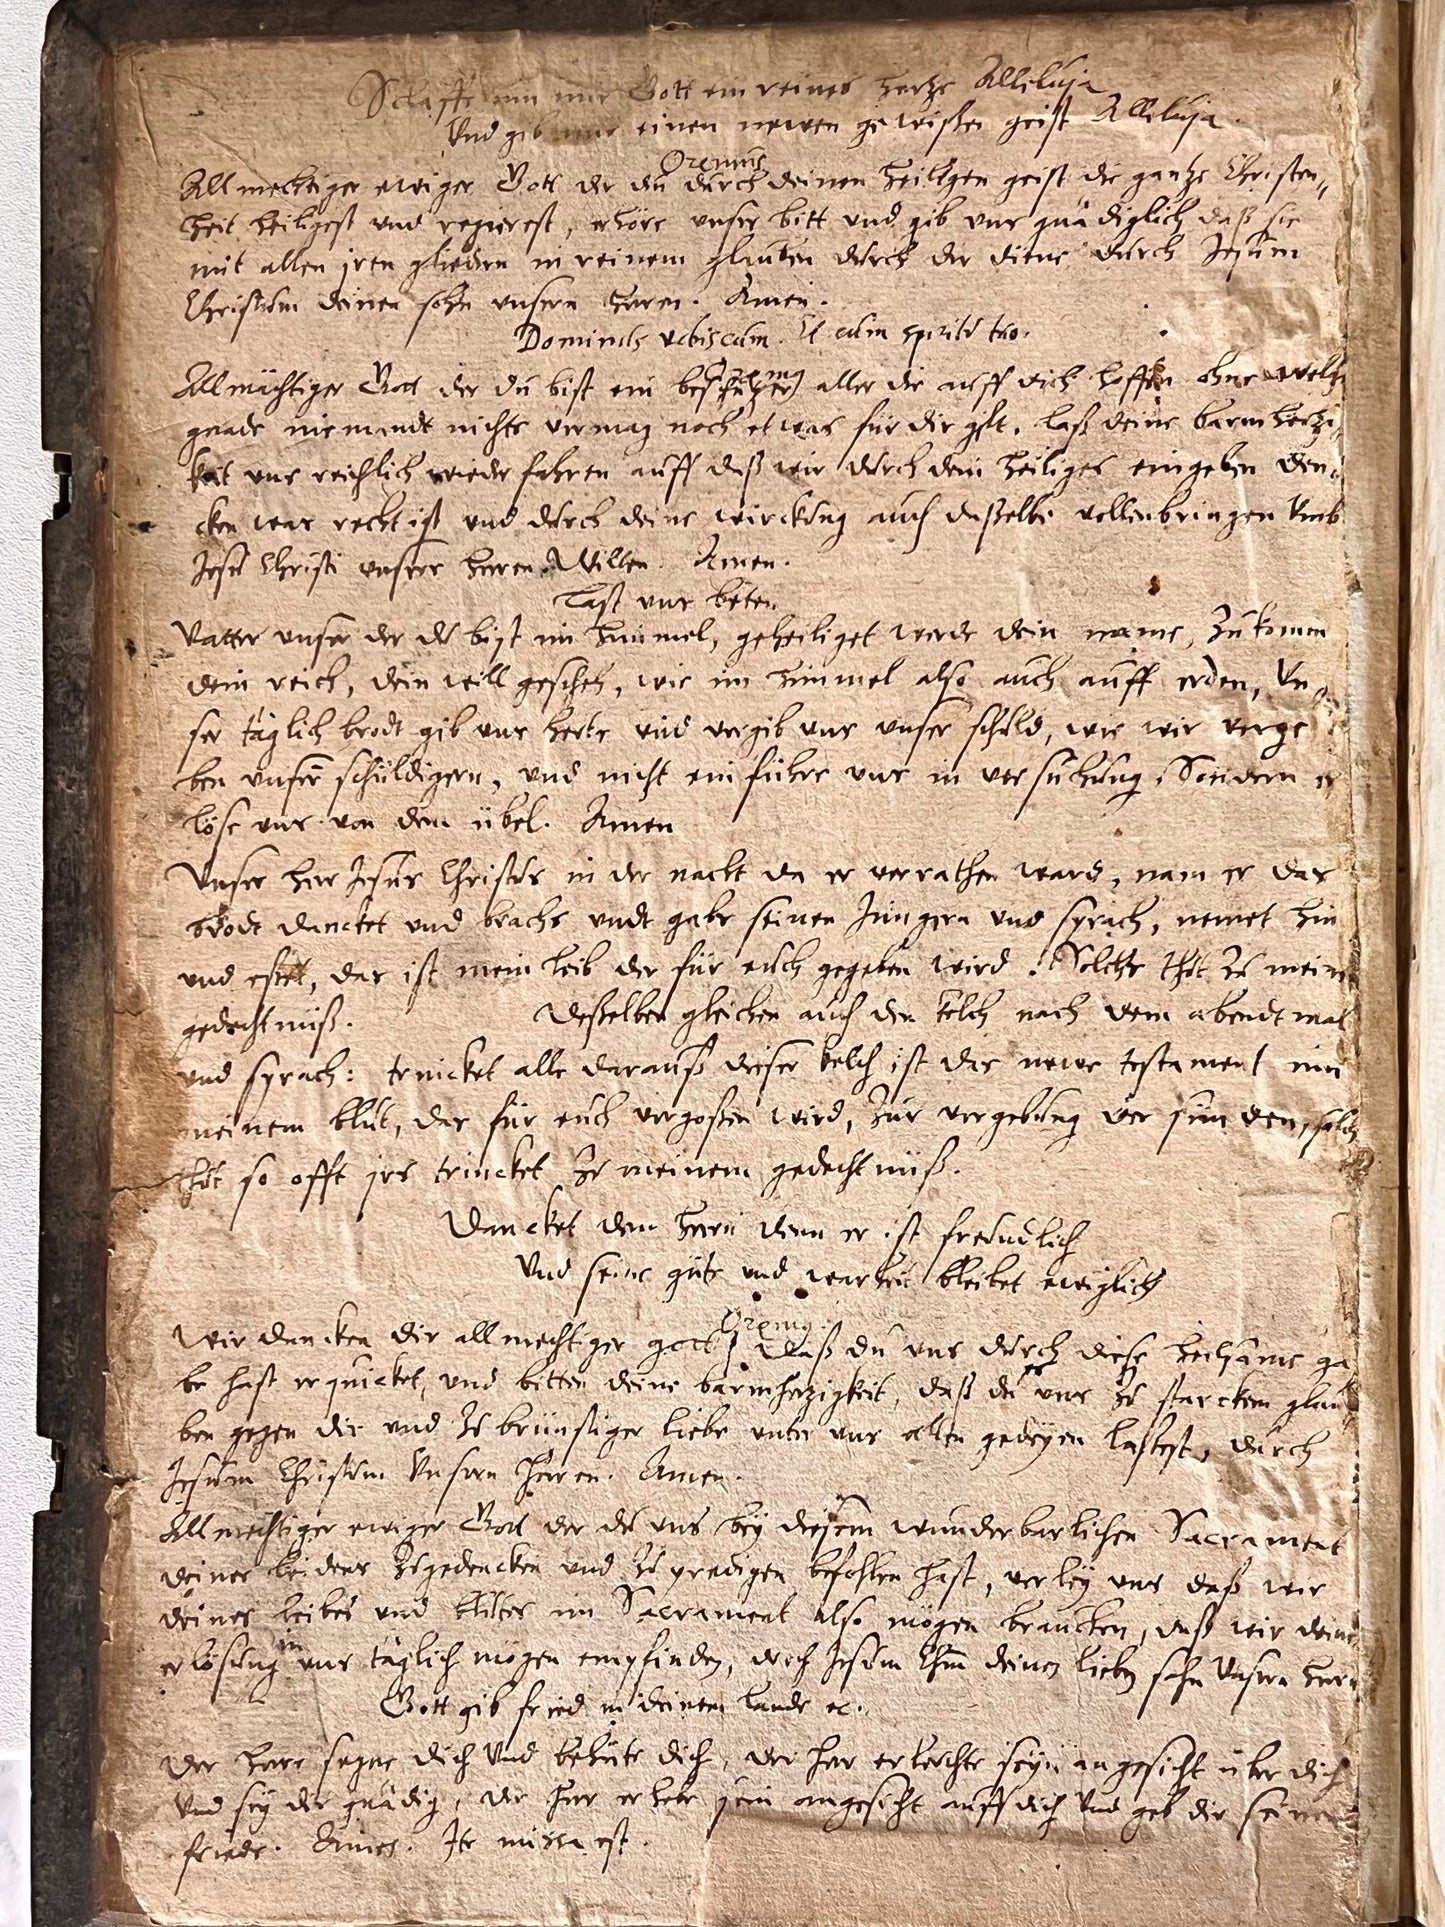 Schaffe inn mir Gott ein reines hertze Alleluja
Und gib mir einen newen gewissen geist Alleluja.
Oremus
Allmechtiger ewiger Gott der du durch deinen heiligen geist die gantze Christen„
heit heiligest und regierest, erhöre unser bitt und gib uns gnädiglich, daß sie
mit allen jren gliedern in reinem glauben durch der diene durch Jesum
Christum deinen sohn unsern herrn. Amen.
Dominus vobiscum. Et cum spiritu tuo.
Oremus
Allmächtiger Gott der du bist ein beschützer aller die auff dich hoffen ohne welch
gnade niemandt nichts vermag noch etwas für dir gilt, laß deine barmhertzi
keit uns reichlich wiederfahren auff daß wir durch dein heiliges eingeben den„
cken was recht ist und durch deine wirckung auch dasselbe vollenbringen Umb
Jesu Christi unsers herren Willen. Amen.
Last uns beten
Vatter unser der du bist im himmel, geheiliget werde dein name, zukomm
dein reich, dein will gescheh, wie im himmel also auch auff erden, Un„
ser täglich brodt gib uns heute und vergib uns unser schuld, wie wir verge
ben unsern schuldigern, und nicht einführe uns in versuchung, Sondern er
löse uns von dem übel. Amen
Unser herr Jesus Christus in der nacht da er verrathen ward, nam er das
brodt dancket und brachs undt gabs seinen Jüngern und sprach, nemet hin
und esset, das ist mein leib der für euch gegeben wird. Solchs thut zu meinem
gedechtnüß. Desselben gleichen auch den kelch nach dem abendtmal
und sprach: trincket alle darauß dieser kelch ist das newe testament inn
meinem blut, das für euch vergossen wird, zur vergebung der sunden, solch
thut so offt jrs trincket zu meinem gedechtnüß.
Dancket dem herrn denn er ist freundlich
Und seine güte und warheit bleibet ewiglich
Oremus.
Wir dancken dir allmechtiger gott, daß du uns durch diese heilsame ga
be hast erquicket, und bitten deine barmherzigkeit, daß du uns zu starckem glau
ben gegen dir und zu brünstiger liebe unter uns allen gedeyen lassest, durch
Jesum Christum Unsern Herren. Amen.
Allmechtiger ewiger Gott der du uns bey diesem wunderbarlichen Sacrament
deines leidens zugedencken und zu predigen befohlen hast, verley uns daß wir
deines leibes und blutes im Sacrament also mögen brauchen, daß wir deine
erlösung in uns täglich mögen empfinden, durch Jesum Chm deinen lieben sohn Unsern herrn
Gott gib fried in deinem lande ec.
Der herre segne dich Und behüte dich, der herr erleuchte seyn angesicht über dich
Und sey dir gnädig, der herr erhebe sein angesicht auff dich Und geb dir seinen
friede. Amen. Ite missa est.